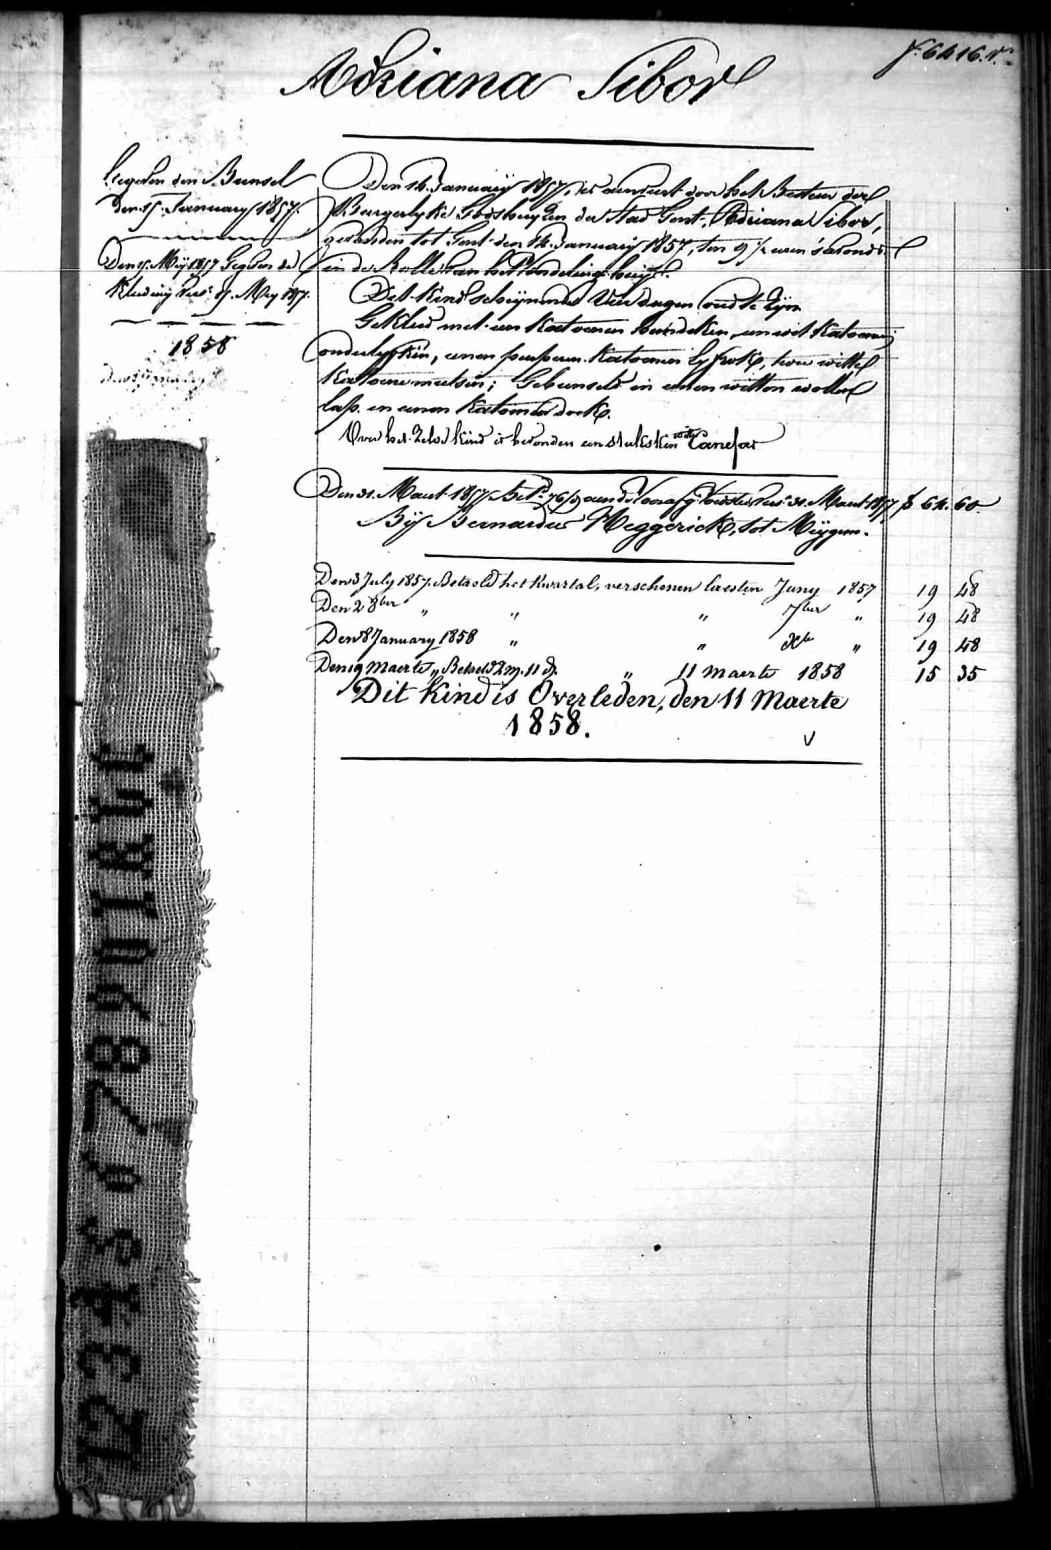 Adriana Sibor
Gegeven den Bunsel
den 15 January 1857.
Den Meÿ 1857 Gegeven de
Kleeding Meÿ 1857.
1858
Den 14 Januarÿ 1857, is aenveert door het Bestuer der
Burgerlyke Godshuyzen der Stad Gent, Adriana Sibor,
gevonden tot Gent den 14 Januarÿ 1857, ten 9 ½ uren 's avonds
in de Rolle van het Vondelinghuys.
Het Kind scheynende Vier dagen oud te zÿn
Gekleed met een Katoenen een wit Katoenen
onderlyfken, eenen purperen Katoenen lyfrok, twee witte
Katoene mutsen; Gebunseld in eenen witten wollen
lap en eenen Katoenen doek.
Over het Zelve kind is bevonden een stuksken Canefas
Den 31 Maert 1857 Bet. 76 d. aen de 31 Maert 1857 f 64.60.
Bÿ Bernardus Heggerick, tot Meÿgem.
Den 3 July 1857. Betaeld het Kwartal, verschenen laesten Juny 1857 19 48
Den 2 8ber „ „ „ 7ber „ 19 48
Den 8 January 1858 „ „ Xbr „ 19 48
Den 19 Maerte „ Betaeld 2 m. 11 d. „ 11 Maerte 1858 15 35
Dit Kind is Overleden, den 11 Maerte
1858.
1 2 3 4 5 6 7 8 9 0 1